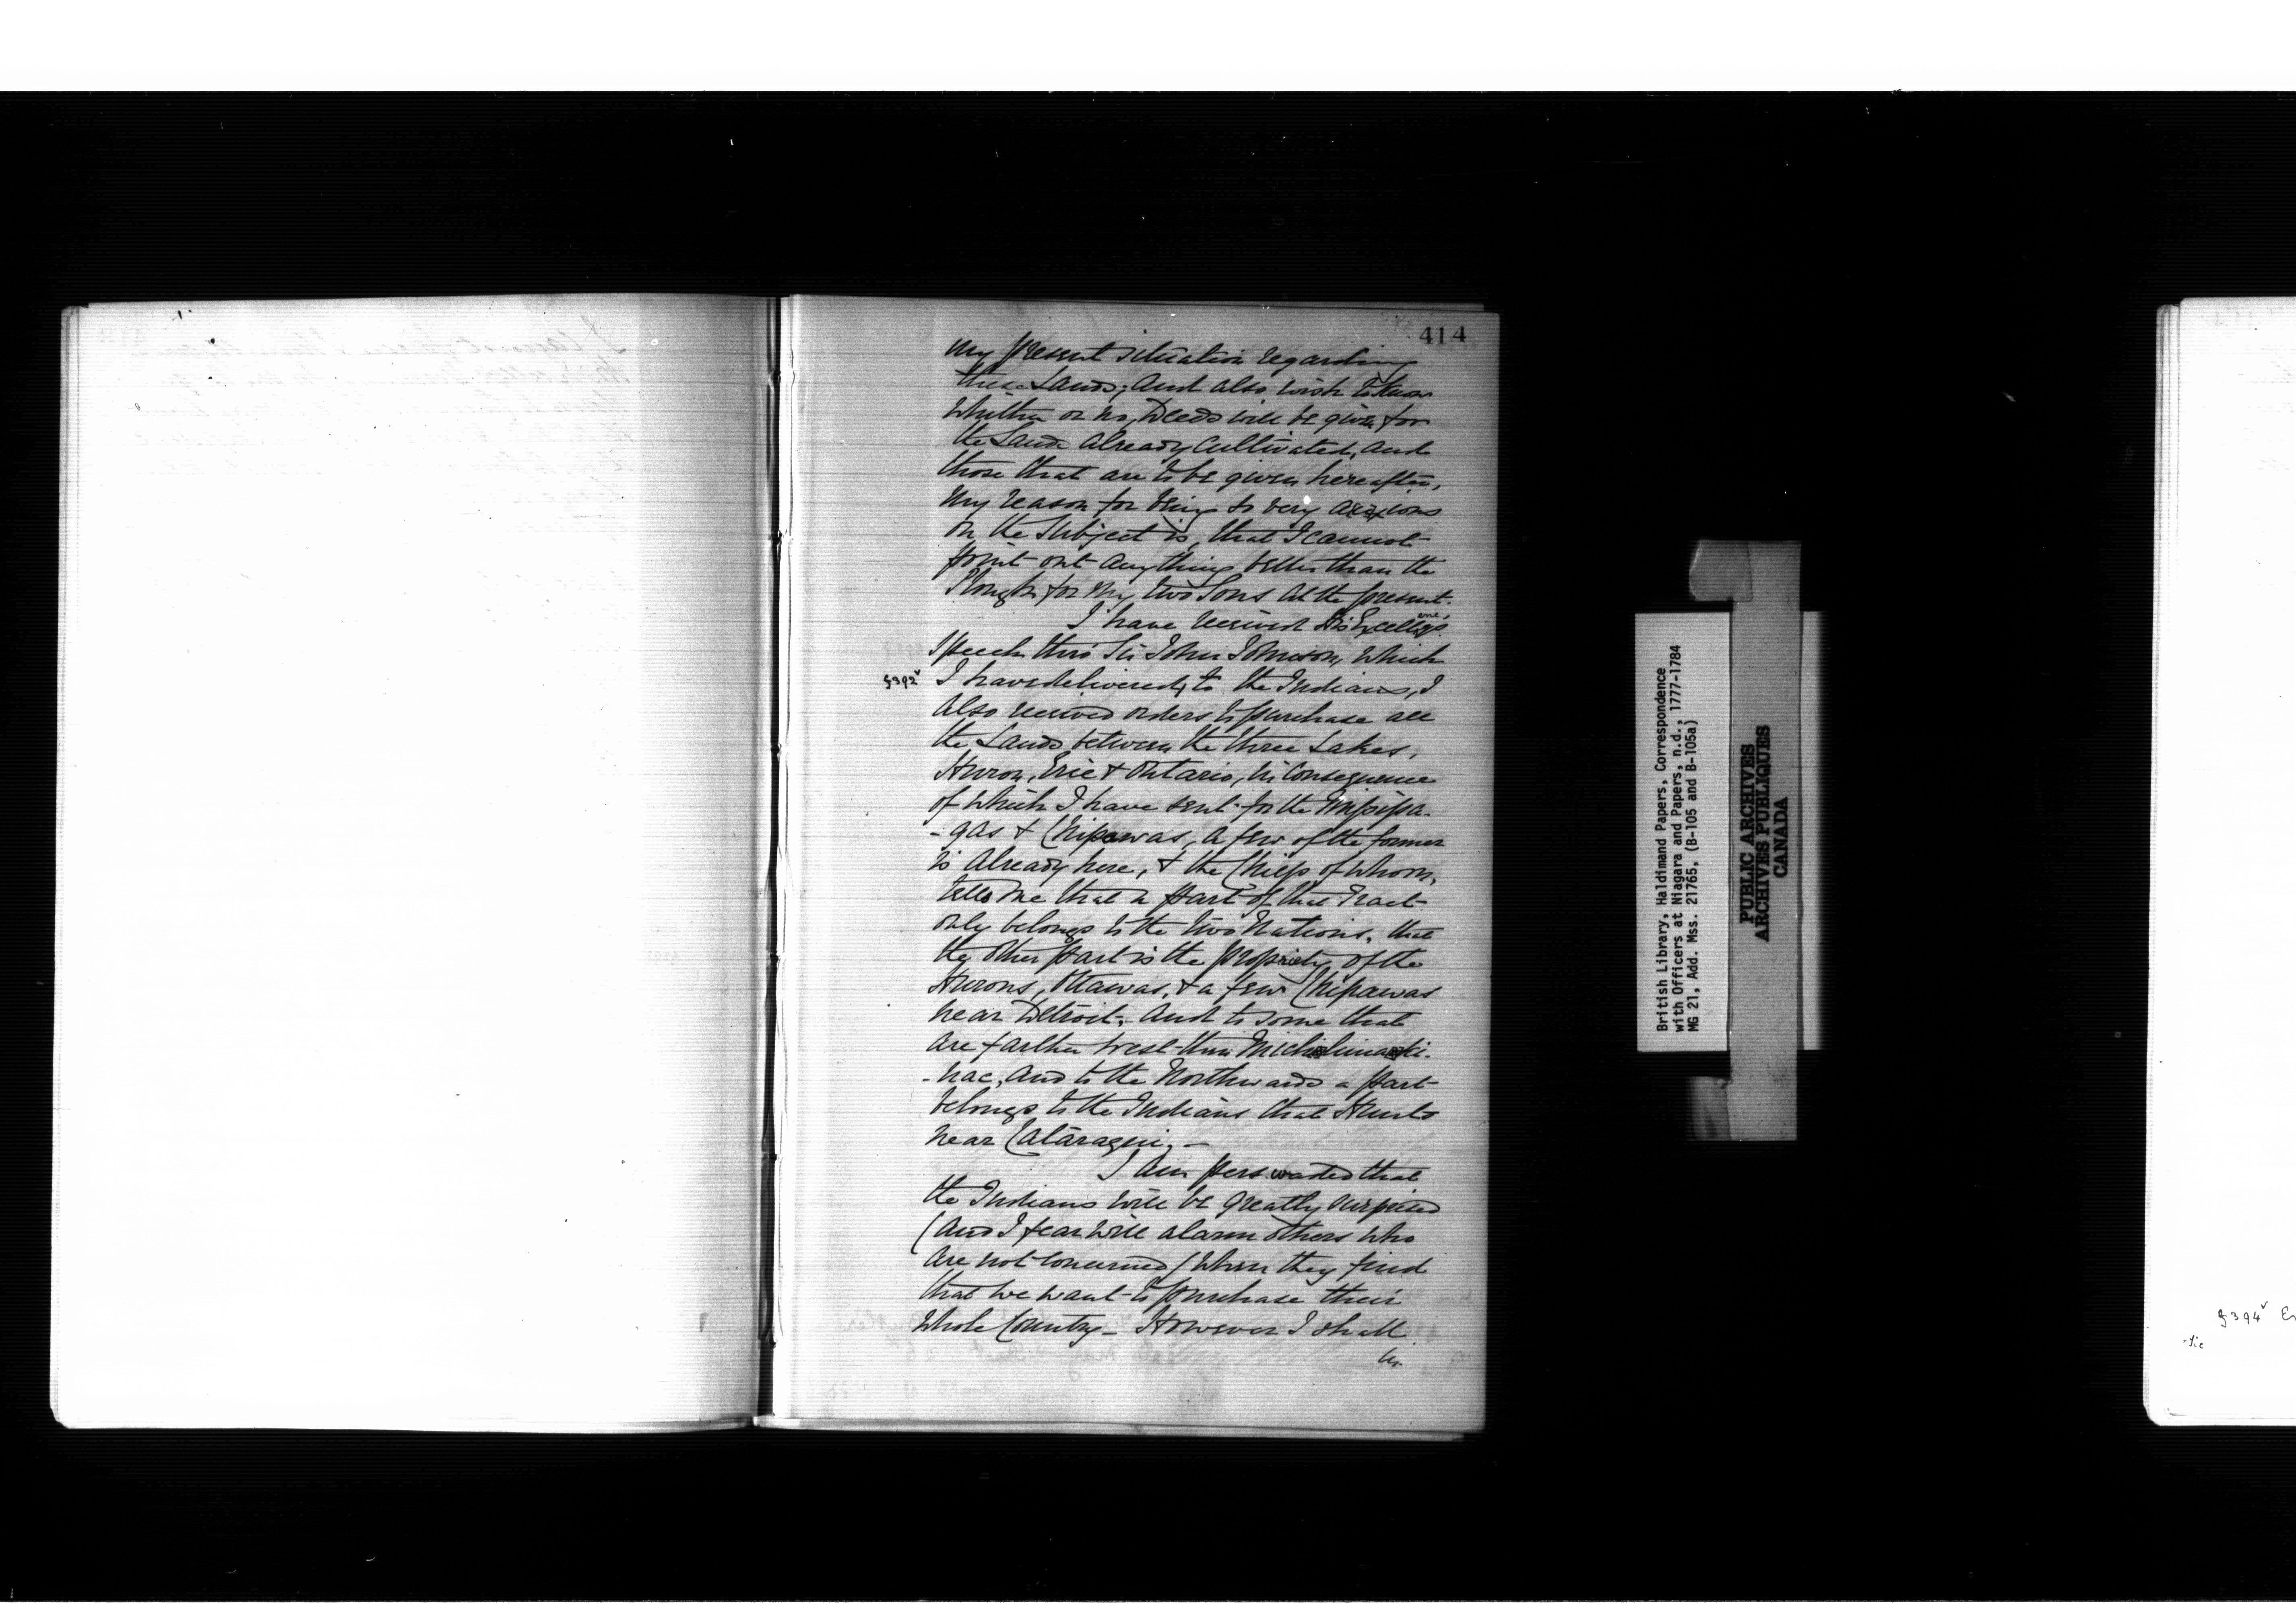 414
my present situation regarding
these Lands; And also wish to know
Whither or no, Deeds will be given for
the Lands already Cultivated, and
those that are to be given hereafter,
My reason for being so very anxious
on the Subject is, that I cannot
point out any thing better than the
Plough for my two Sons at the present.
I have received His Excellency's
Speech thro' Sir John Johnson, Which
f392v I have delivered, to the Indians, I
Also received orders to purchase all
the Lands between the three Lakes,
Huron, Erie & Ontario, in Consequence
of which I have sent for the Missisa-
-gas & Chipawas, a few of the former
is Already here, & the Chiefs of Whom,
tells me that a part of that Tract
only belongs to the two Nations, that
the Other part is the propriety of the
Hurons, Ottawas, & a few Chipawas
near Detroit, And to some that
Are farther West than Michilimacki-
-nac, And to the Northwards a part
belongs to the Indians that Hunts
near Cataraqui. —
I Am perswaded that
the Indians will be greatly surprised
(And I fear Will alarm others Who
Are not Concerned) When they find
that we want to purchase their
Whole Country — However I shall
in
British Library, Haldimand Papers, Correspondence
with Officers at Niagara and Papers, n.d., 1777-1784
MG 21, Add. Mss. 21765, (B-105 and B-105a)
PUBLIC ARCHIVES
ARCHIVES PUBLIQUES
CANADA
f394v
Sic